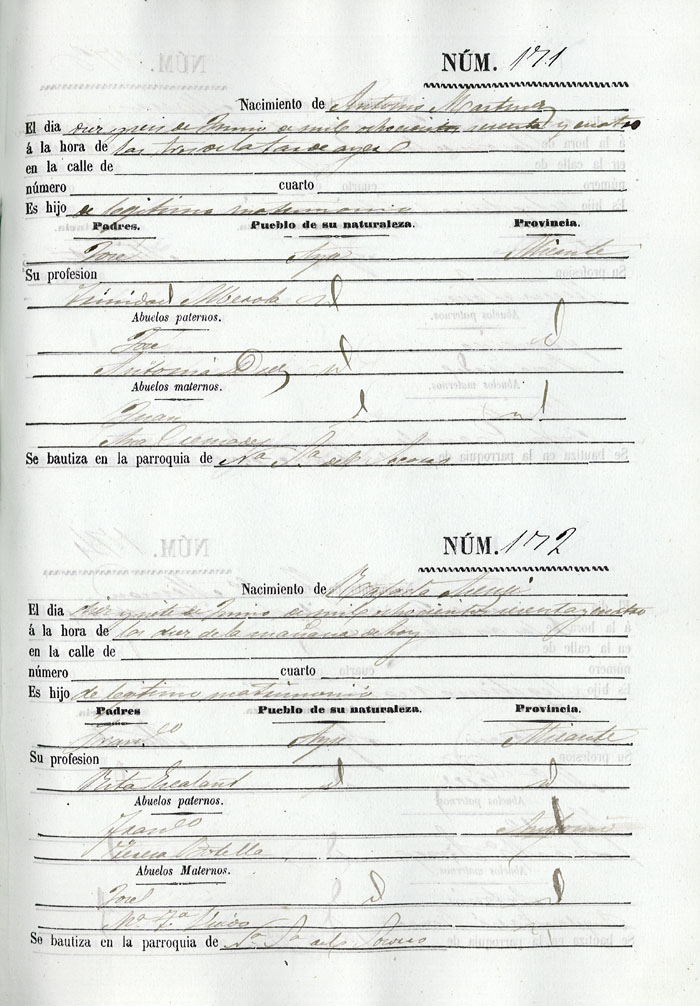 NÚM. 171
Nacimiento de Antonio Martinez
El dia diez y seis de Junio de mil ochocientos sesenta y cuatro
á la hora de las tres de la tarde de ayer
en la calle de
número cuarto
Es hijo de legitimo matrimonio
Padres. Pueblo de su naturaleza. Provincia.
José Aspe Alicante
Su profesion
Trinidad id
Abuelos paternos.
José id
Antonia id
Abuelos maternos.
Juan id id
Ana
Se bautiza en la parroquia de Nª Sª del Socorro
NÚM. 172
Nacimiento de Rafaela
El dia diez y siete de Junio de mil ochocientos sesenta y cuatro
á la hora de las diez de la mañana de hoy
en la calle de
número cuarto
Es hijo de legitimo matrimonio
Padres Pueblo de su naturaleza. Provincia.
Franco Aspe Alicante
Su profesion
Rita id id
Abuelos paternos.
Franco
Teresa Botella
Abuelos Maternos.
José id id
Mª
Se bautiza en la parroquia de Nª Sª del Socorro